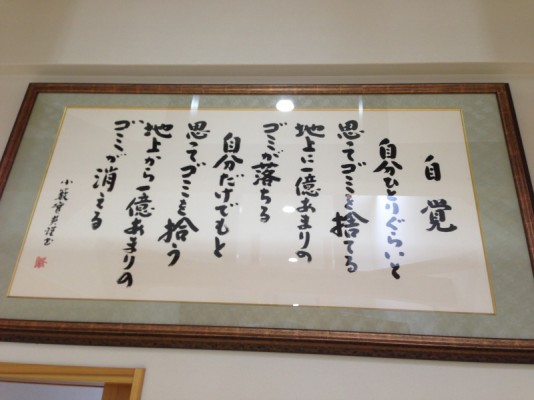 自覚
自分ひとりぐらいと
思ってゴミを捨てる
地上に一億あまりの
ゴミが落ちる
自分だけでもと
思ってゴミを拾う
地上から一億あまりの
ゴミが消える
小藪實